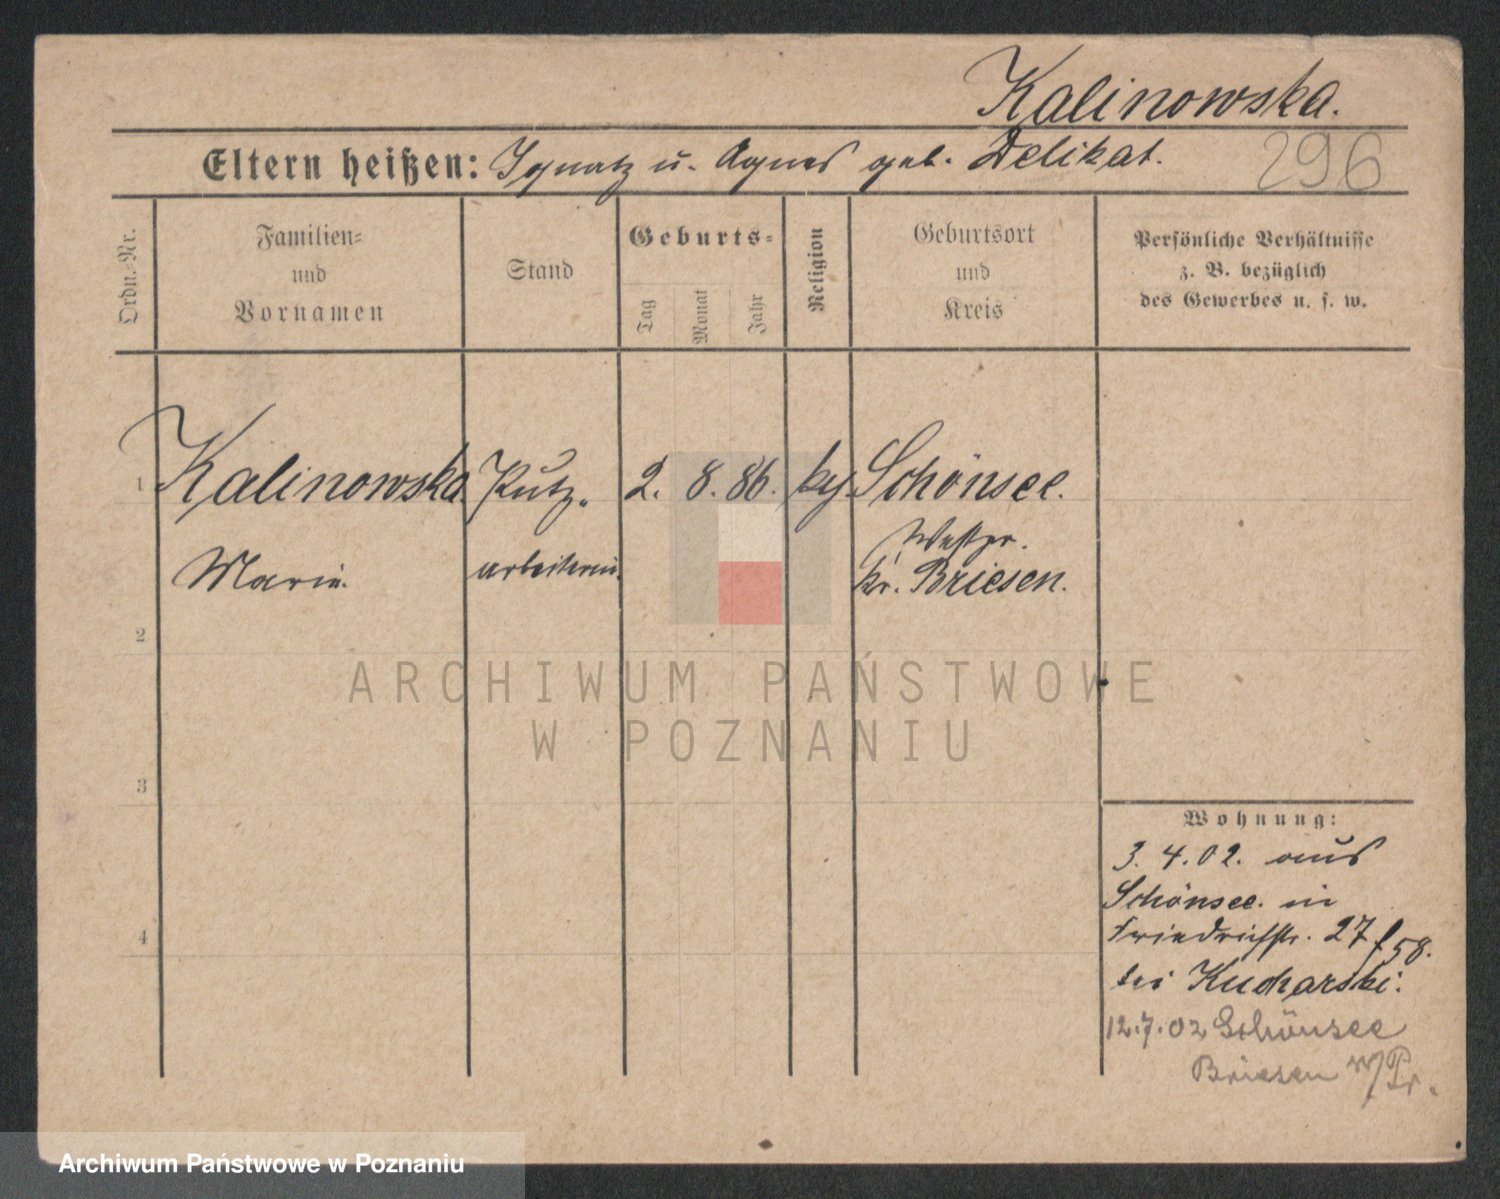 Kalinowska.
Eltern heißen: Ignatz u. Agnes geb. Delikat.
296
Ordn.-Nr.
Familien-
und
Vornamen
Stand
Geburts-
Tag
Monat
Jahr
Religion
Geburtsort
und
Kreis
Persönliche Verhältnisse
z. B. bezüglich
des Gewerbes u. s. w.
1 Kalinowska Putz- 2. 8. 86. Schönsee.
Westpr.
Marie. arbeiterin. Kr. Briesen.
2
3
4
Wohnung:
3. 4. 02. aus
Schönsee. in
Friedrichstr. 27 f 58.
bei Kucharski.
12.7.02 Schönsee
Briesen W/Pr.
ARCHIWUM PAŃSTWOWE
W POZNANIU
Archiwum Państwowe w Poznaniu